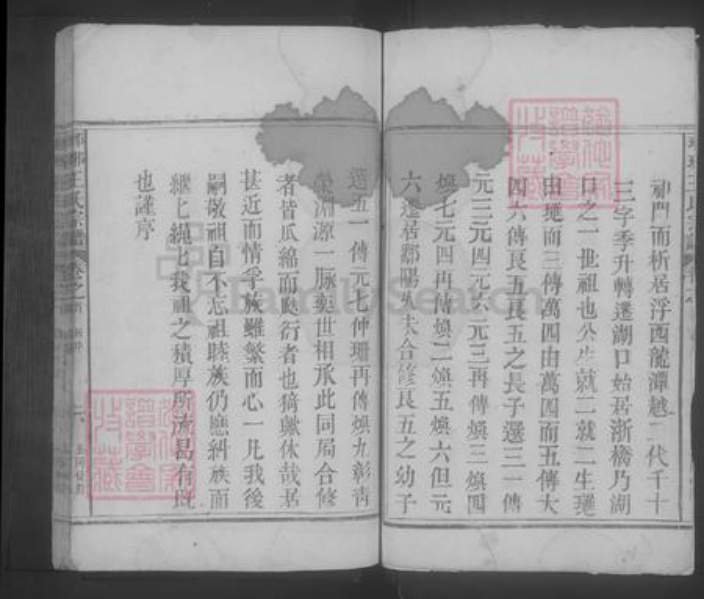 神門而析居浮西龍潭越二代千十
三字季升轉遷湖口始居浙橋乃湖
口之一世祖也公生就二就二生璭
由璭而三傳萬四由萬四而五傳大
四六傳良五良五之長子遷三一傳
元三元四元六元三再傳煥三煥四
煥七元四再傳煥二煥五煥六但元
六遷居鄱陽八大合修良五之幼子
遷五一傳元七仲珊再傳煥九彰靑
淵源一脉奕世相承此同局合修
者皆瓜綿而瓞衍者也猗歟休哉居
甚近而情孚族雖繁而心一凡我後
嗣敬祖自不忘祖睦族仍應糾族而
繼上繩上我祖之積厚所流曷有旣
也謹序
王氏宗譜
FamilySearch